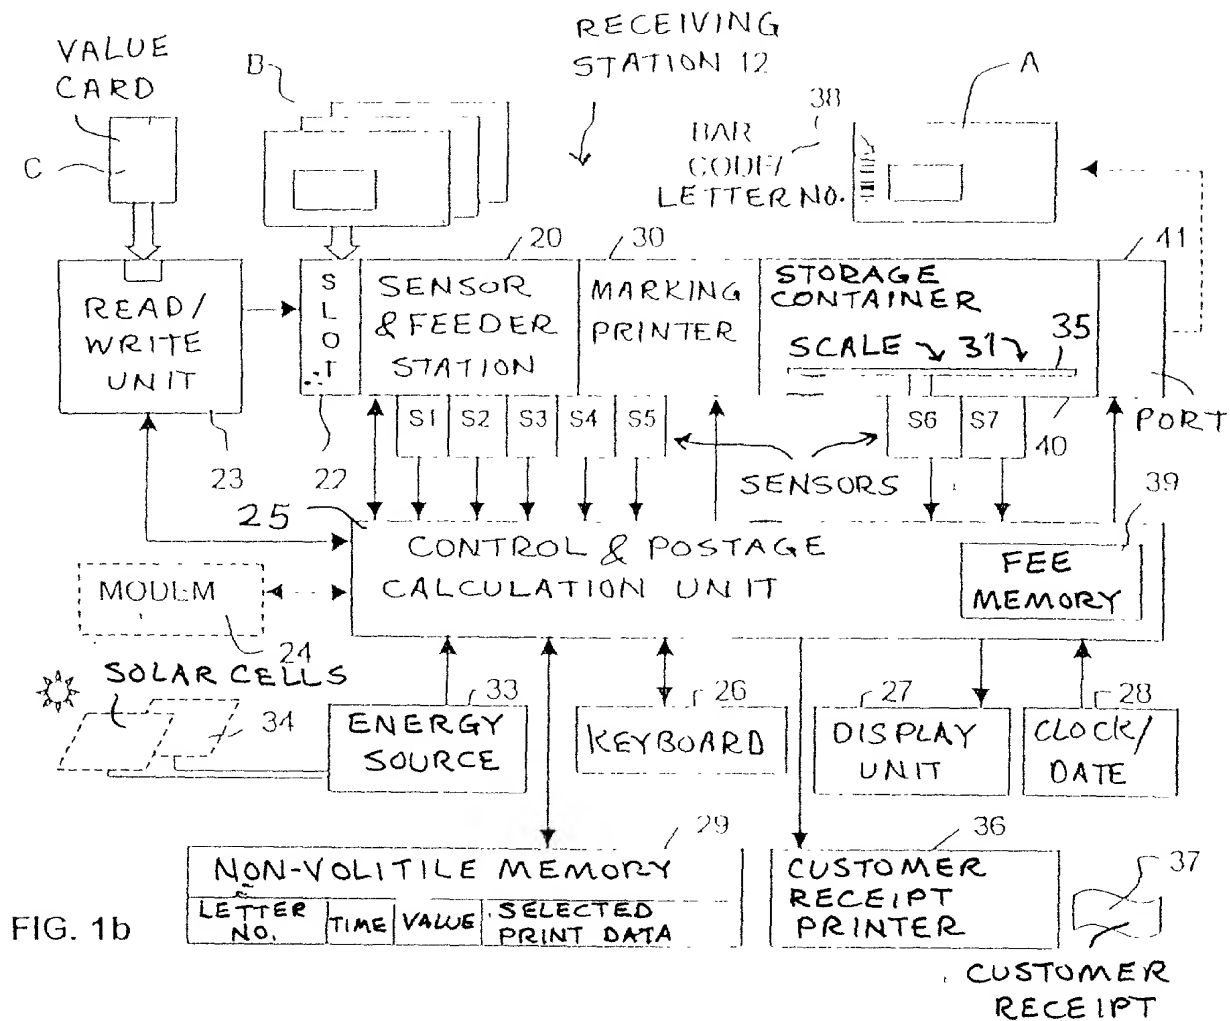 VALUE
CARD
B
RECEIVING
STATION 12
A
38
BAR
CODE/
LETTER NO.
C
20
30
41
READ/
WRITE
UNIT
SLOT
SENSOR
& FEEDER
STATION
MARKING
PRINTER
STORAGE
CONTAINER
SCALE 31
35
PORT
S1 S2 S3 S4 S5
S6 S7
40
23
22
SENSORS
39
25
CONTROL & POSTAGE
CALCULATION UNIT
FEE
MEMORY
MODEM
24
SOLAR CELLS
34
33
ENERGY
SOURCE
26
KEYBOARD
27
DISPLAY
UNIT
28
CLOCK/
DATE
29
NON-VOLITILE MEMORY
LETTER
NO.
TIME
VALUE
SELECTED
PRINT DATA
36
CUSTOMER
RECEIPT
PRINTER
37
CUSTOMER
RECEIPT
FIG. 1b